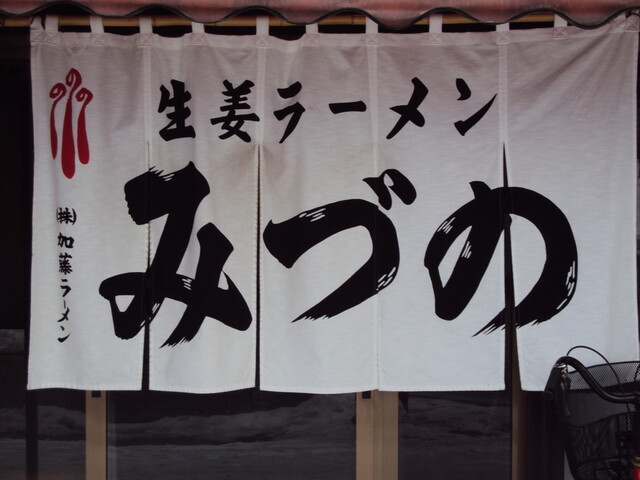 生姜ラーメン
みづの
㈱加藤ラーメン